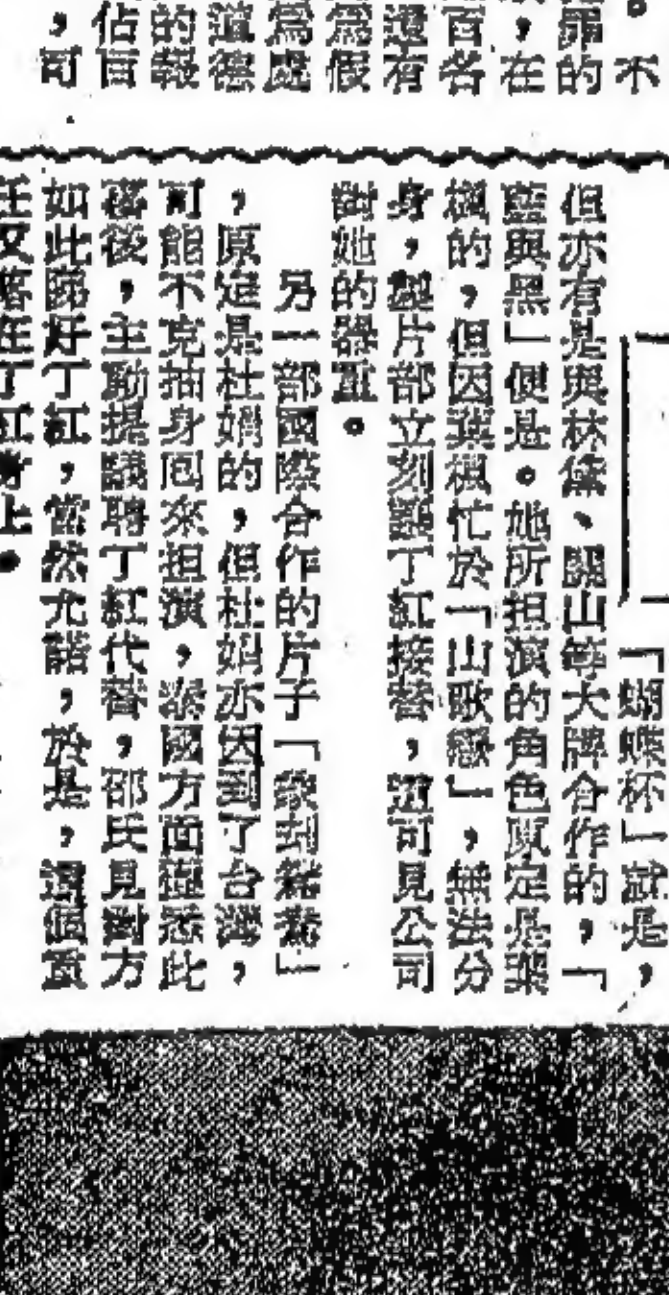 。不
罪的
，在
百各
還有
為假
為處
道德
的報
佔百
，司
「蝴蝶杯」就是，
但亦有是與林黛、關山等大牌合作的，「
藍與黑」便是。她所担演的角色原定是葉
楓的，但因葉楓忙於「山歌戀」，無法分
身，製片部立刻讓丁紅接替，這可見公司
對她的器重。
另一部國際合作的片子「鴛鴦」
，原定是杜娟的，但杜娟亦因到了台灣，
可能不克抽身回來担演，泰國方面獲悉此
後，主動提議聘丁紅代替，邵氏見對方
如此睇好丁紅，當然允諾，於是，這個重
任又落在丁紅身上。